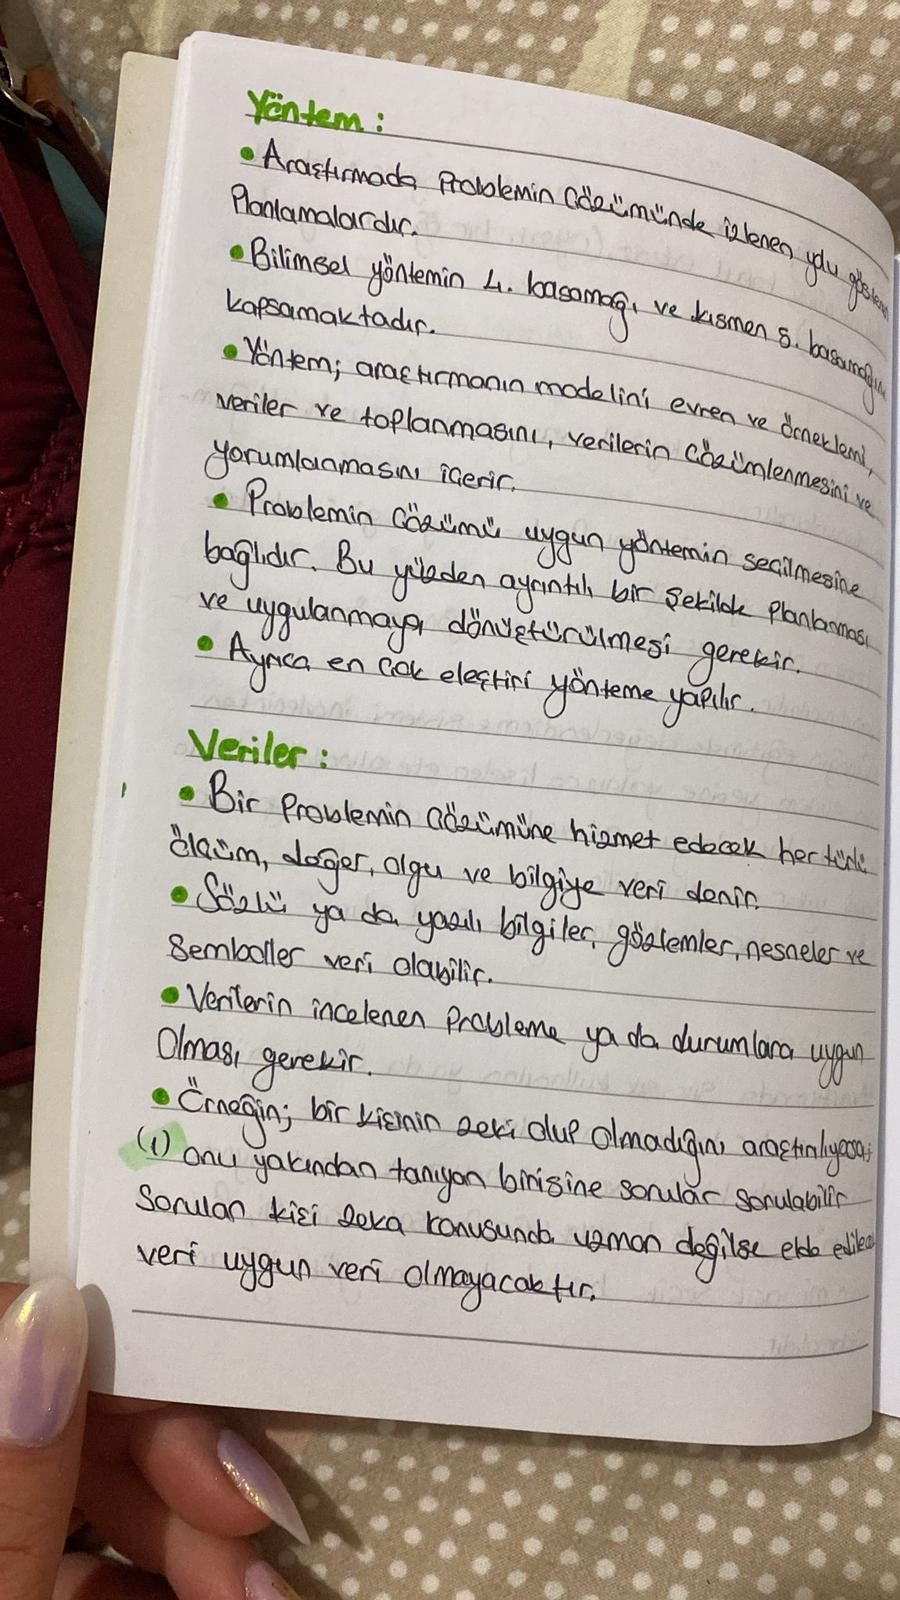 Yöntem :
• Araştırmada Problemin Çözümünde izlenen yolu gösteren
Planlamalardır.
• Bilimsel yöntemin 4. basamağı ve kısmen 5. basamağını
kapsamaktadır.
• Yöntem; araştırmanın modelini evren ve örneklemi,
veriler ve toplanmasını, verilerin Çözümlenmesini ve
yorumlanmasını içerir.
• Problemin Çözümü uygun yöntemin seçilmesine
bağlıdır. Bu yüzden ayrıntılı bir şekilde Planlanması
ve uygulanmaya dönüştürülmesi gerekir.
• Ayrıca en çok eleştiri yönteme yapılır.
Veriler :
• Bir Problemin Çözümüne hizmet edecek her türlü
ölçüm, değer, olgu ve bilgiye veri denir.
• Sözlü ya da yazılı bilgiler, gözlemler, nesneler ve
Semboller veri olabilir.
• Verilerin incelenen Probleme ya da durumlara uygun
Olması gerekir.
• Örneğin; bir kişinin zeki olup olmadığını araştırılıyosa;
(1) onu yakından tanıyan birisine sorular sorulabilir
Sorulan kişi zeka konusunda uzman değilse elde edilen
veri uygun veri olmayacaktır.